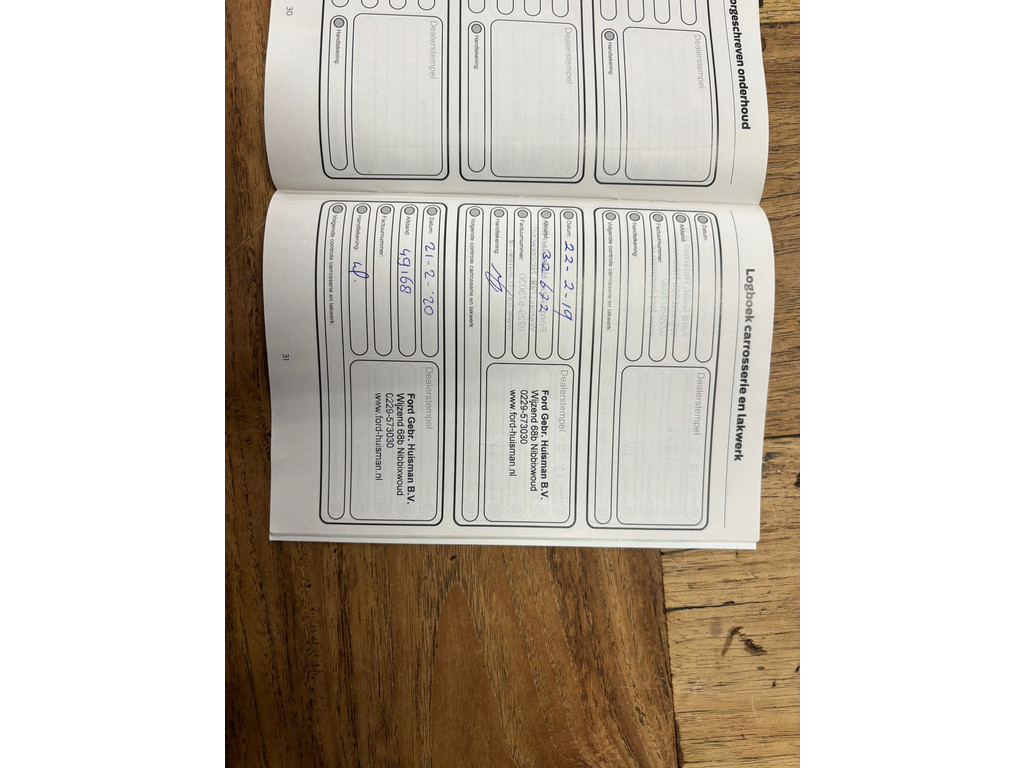 orgeschreven onderhoud
Dealerstempel
Handtekening:
Dealerstempel
Handtekening:
Dealerstempel
Handtekening:
30
Logboek carrosserie en lakwerk
Datum:
Afstand:
Factuurnummer:
Handtekening:
Volgende controle carrosserie en lakwerk:
Dealerstempel
Datum: 22-2-19
Afstand: 32672
Factuurnummer:
Handtekening:
Volgende controle carrosserie en lakwerk:
Dealerstempel
Ford Gebr. Huisman B.V.
Wijzend 68b Nibbixwoud
0229-573030
www.ford-huisman.nl
Datum: 21-2-'20
Afstand: 49168
Factuurnummer:
Handtekening:
Volgende controle carrosserie en lakwerk:
Dealerstempel
Ford Gebr. Huisman B.V.
Wijzend 68b Nibbixwoud
0229-573030
www.ford-huisman.nl
31